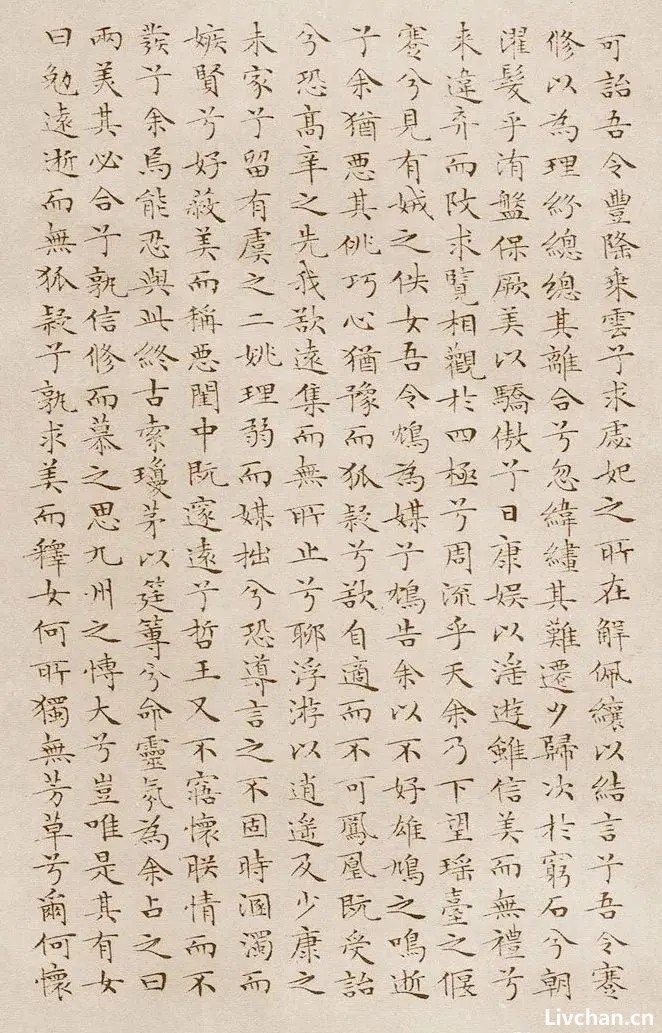 可詒吾令豐隆乘雲兮求虙妃之所在解佩纕以結言兮吾令蹇
修以為理紛總總其離合兮忽緯繣其難遷夕歸次於窮石兮朝
濯髮乎洧盤保厥美以驕傲兮日康娛以淫遊雖信美而無禮兮
来違弃而改求覽相觀於四極兮周流乎天余乃下望瑤臺之偃
蹇兮見有娀之佚女吾令鴆為媒兮鴆告余以不好雄鳩之鳴逝
兮余猶惡其佻巧心猶豫而狐疑兮欲自適而不可鳳凰既受詒
兮恐高辛之先我欲遠集而無所止兮聊浮游以逍遙及少康之
未家兮留有虞之二姚理弱而媒拙兮恐導言之不固時溷濁而
嫉賢兮好蔽美而稱惡閨中既邃遠兮哲王又不寤懷朕情而不
發兮余焉能忍與此終古索瓊茅以筳篿兮命靈氛為余占之曰
兩美其必合兮孰信修而慕之思九州之博大兮豈唯是其有女
曰勉遠逝而無狐疑兮孰求美而釋女何所獨無芳草兮爾何懷
Livchan.cn